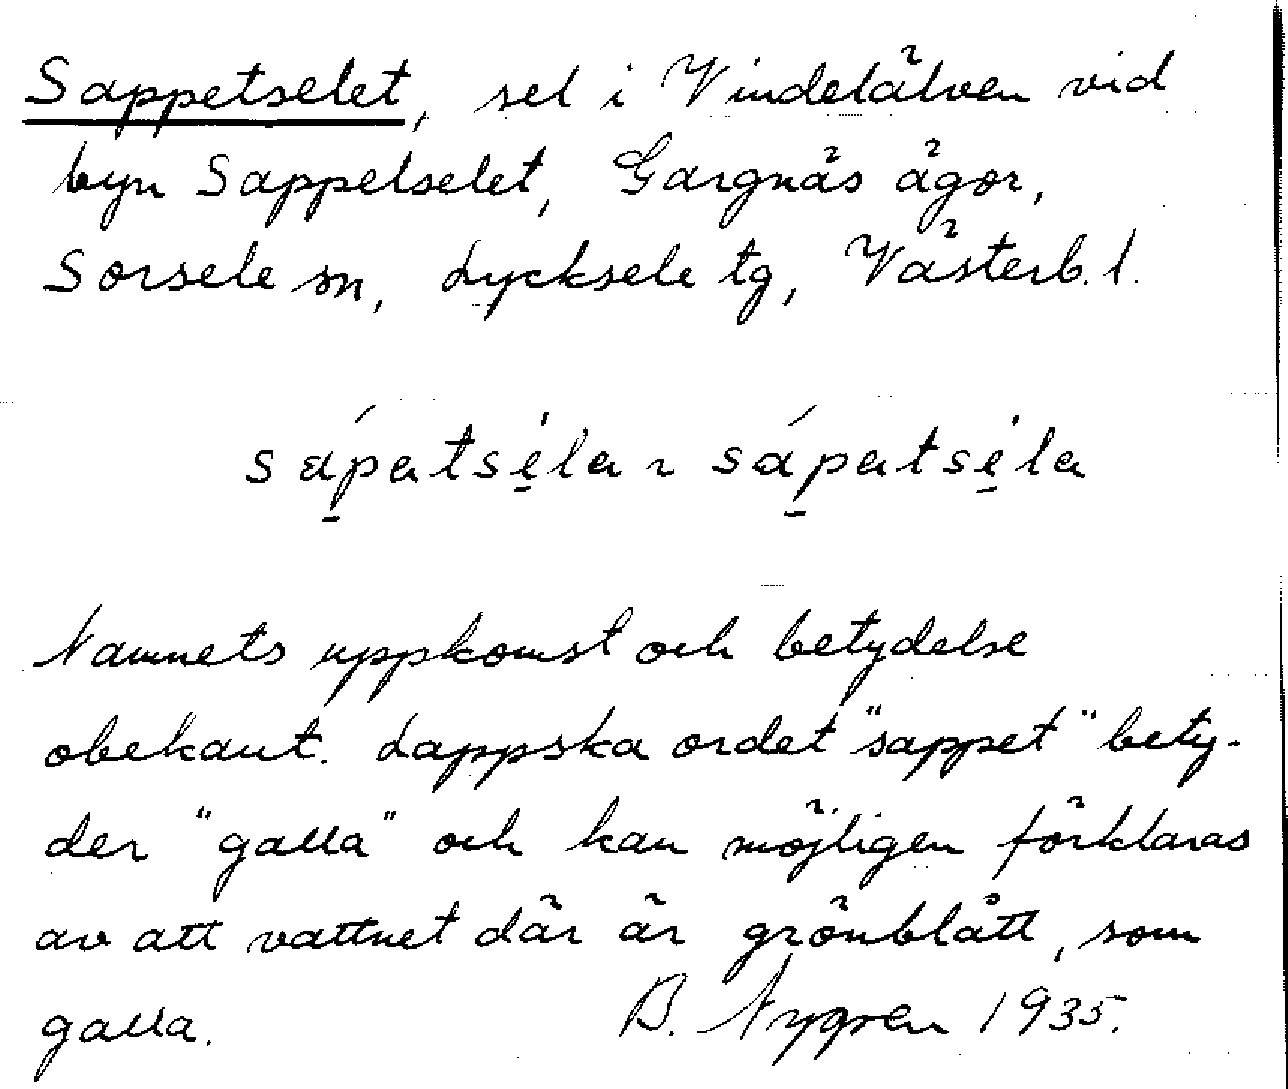 Sappetselet, sel i Vindelälven vid
byn Sappetselet, Gargnäs ägor,
Sorsele sn, Lycksele tg, Västerb. l.
sápatséla ~ sápatséla
Namnets uppkomst och betydelse
obekant. Lappska ordet "sappet" bety-
der "galla" och kan möjligen förklaras
av att vattnet där är grönblått, som
galla. B. Nygren 1935.